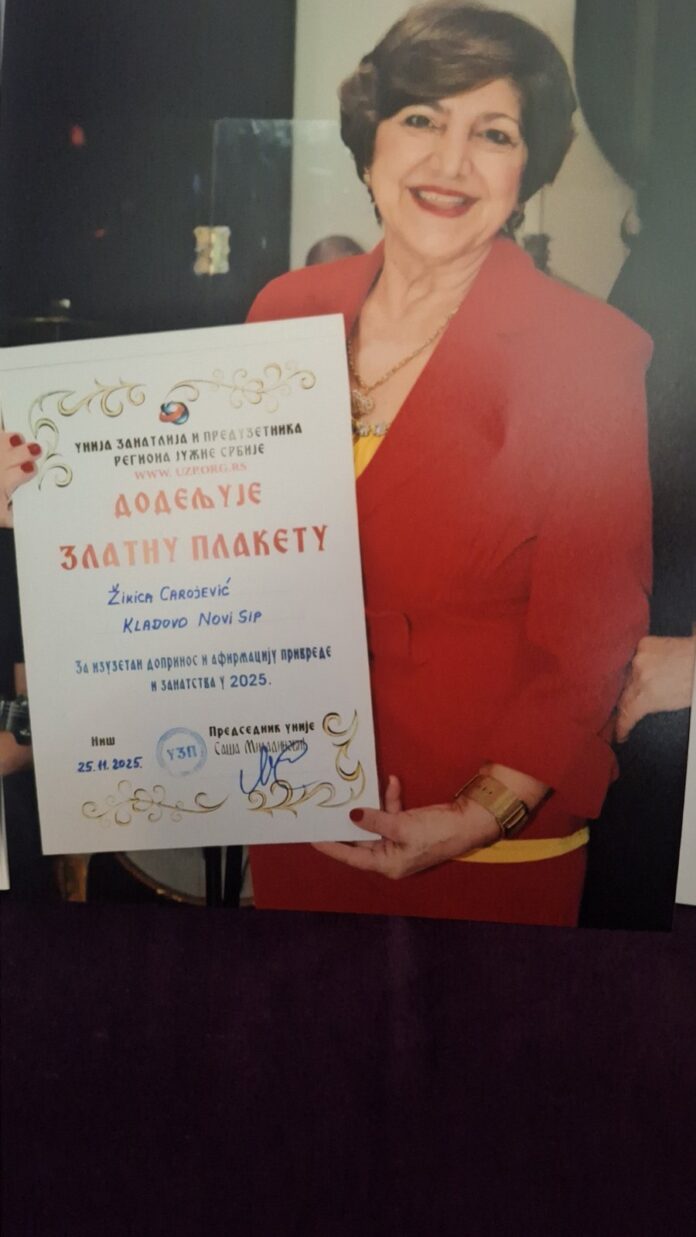 УНИЈА ЗАНАТЛИЈА И ПРЕДУЗЕТНИКА
РЕГИОНА ЈУЖНЕ СРБИЈЕ
WWW.UZP.ORG.RS
ДОДЕЉУЈЕ
ЗЛАТНУ ПЛАКЕТУ
ŽIKICA CAROJEVIĆ
KLADOVO NOVI SIP
За изузетан допринос и афирмацију привреде
и занатства у 2025.
Ниш
25.11.2025.
УЗП
Председник уније
Саша